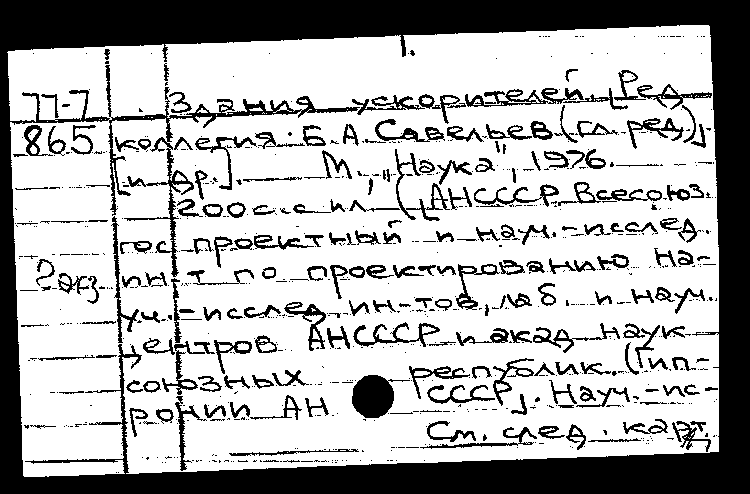 1.
77-7 Здания ускорителей. [Ред
865 коллегия: Б. А. Савельев (гл. ред.)]
[и др.]. М., „Наука", 1976.
200 с. с ил. ([АН СССР. Всесоюз.
гос проектный и науч.-исслед.
2 экз ин-т по проектированию на-
уч.-исслед. ин-тов, лаб. и науч.
центров АН СССР и акад. наук
союзных республик. (Гип-
ронии АН СССР)]. Науч.-ис-
См. след. карт.